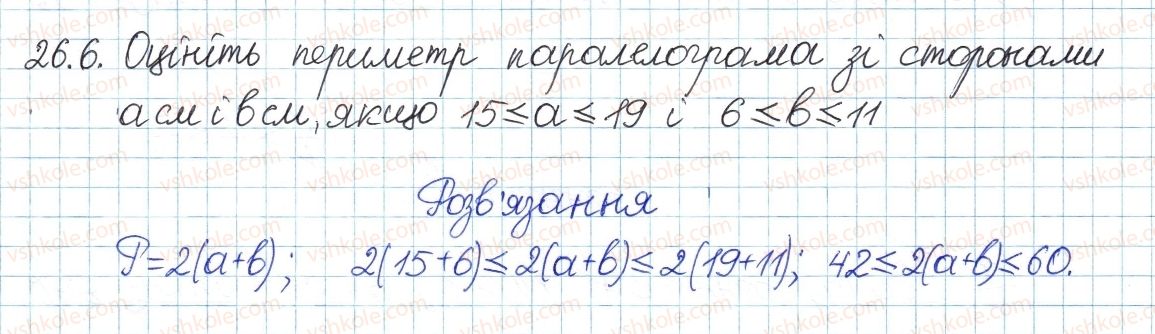 26.6. Оцініть периметр паралелограма зі сторонами
a см і b см, якщо 15 ≤ a ≤ 19 і 6 ≤ b ≤ 11
Розв'язання
P=2(a+b); 2(15+6) ≤ 2(a+b) ≤ 2(19+11); 42 ≤ 2(a+b) ≤ 60.
vshkole.com